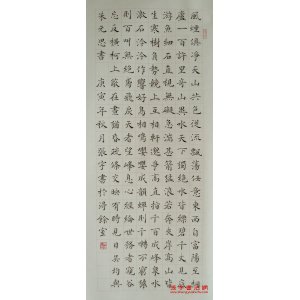 風煙俱淨天山共色從流飄蕩任意東西自富陽至桐
廬一百許里奇山異水天下獨絕水皆縹碧千丈見底
游魚細石直視無礙急湍甚箭猛浪若奔夾岸高山皆
生寒樹負勢競上互相軒邈爭高直指千百成峰泉水
激石泠泠作響好鳥相鳴嚶嚶成韻蟬則千轉不窮猿
則百叫無絕鳶飛戾天者望峰息心經綸世務者窺谷
忘反橫柯上蔽在晝猶昏疏條交映有時見日吳均與
朱元思書 庚寅年秋月張宇書於得餘室